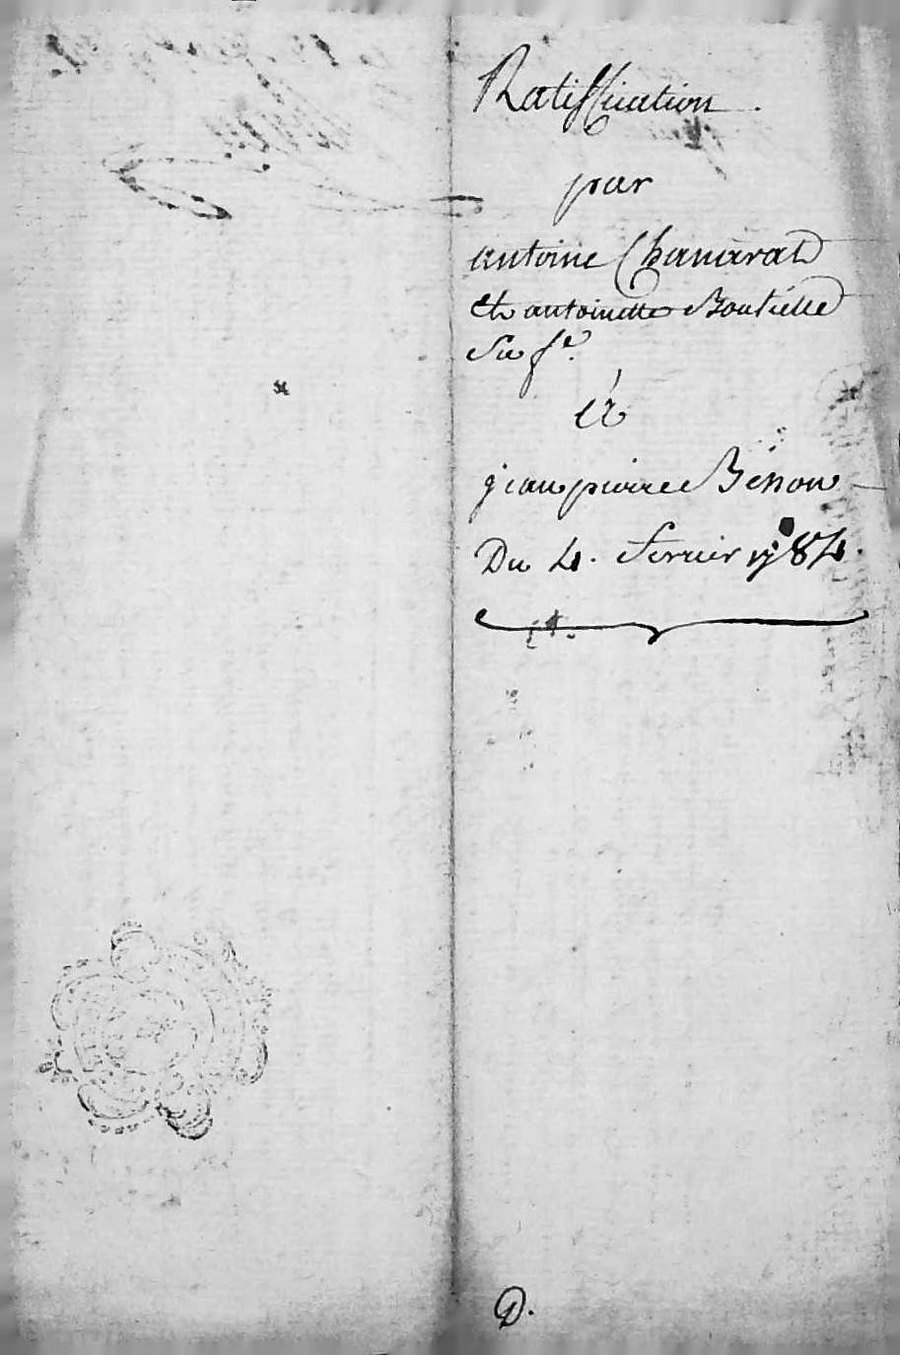 Ratiffication.
par
antoine Chamarat
et antoinette Boutielle
Sa f.e
et
jean pierre Benon
Du 4. fevrier 1784.
D.